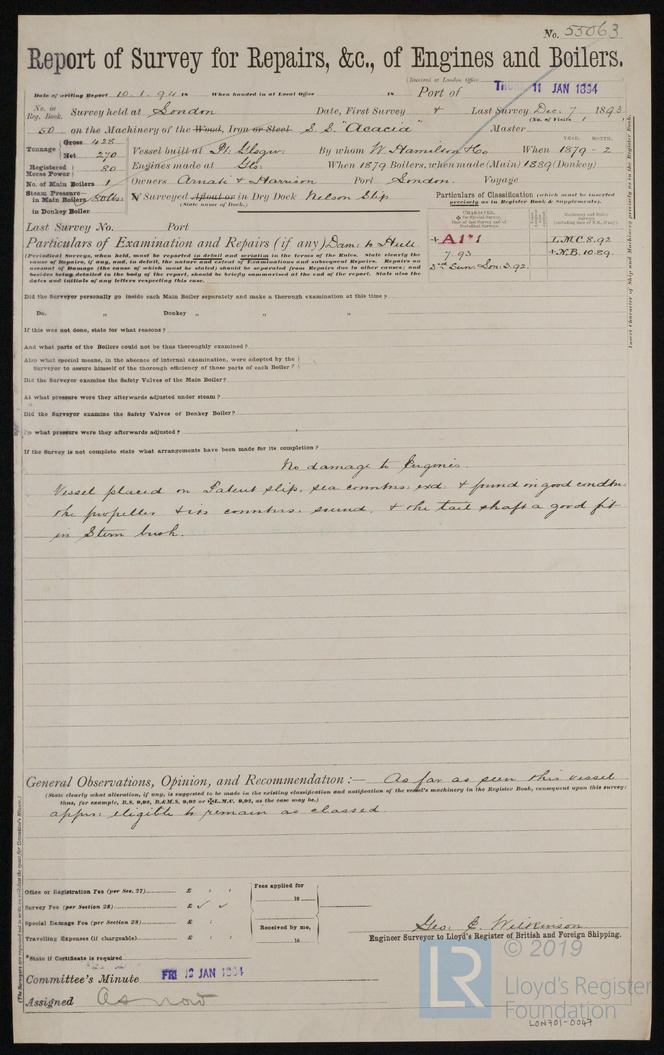 No. 55063
Report of Survey for Repairs, &c., of Engines and Boilers.
(Received at London Office
Date of writing Report 10.1.94 18 When handed in at Local Office 18 Port of THURS 11 JAN 1894
No. in Reg. Book. Survey held at London Date, First Survey & Last Survey Dec. 7 1893
(No. of Visits 1 )
50 on the Machinery of the Wood, Iron or Steel S.S. "Acacia" Master
Tonnage Gross 428 Net 270 Vessel built at Pt. Glsgw. By whom W. Hamilton & Co When 1879 - 2
YEAR. MONTH.
Registered Horse Power 80 Engines made at Gls. When 1879 Boilers, when made (Main) 1889 (Donkey)
No. of Main Boilers 1 Owners Amati & Harrison Port London. Voyage
Steam Pressure in Main Boilers 80 lbs. Surveyed Afloat or in Dry Dock Nelson Slip
(State name of Dock.)
in Donkey Boiler
Particulars of Classification (which must be inserted precisely as in Register Book & Supplements).
Last Survey No. Port
+ A1*1 L.M.C. 8.92
7.93 +N.B. 10.89.
2nd Surv. Lon. 3.92.
Particulars of Examination and Repairs (if any) Dam: to Hull.
(Periodical Surveys, when held, must be reported in detail and seriatim in the terms of the Rules. State clearly the
cause of Repairs, if any, and, in detail, the nature and extent of Examinations and subsequent Repairs. Repairs on
account of Damage (the cause of which must be stated) should be separated from Repairs due to other causes; and
besides being detailed in the body of the report, should be briefly summarised at the end of the report. State also the
dates and initials of any letters respecting this case.
Did the Surveyor personally go inside each Main Boiler separately and make a thorough examination at this time ?
Do. „ Donkey „ „ „
If this was not done, state for what reasons ?
And what parts of the Boilers could not be thus thoroughly examined ?
Also what special means, in the absence of internal examination, were adopted by the
Surveyor to assure himself of the thorough efficiency of those parts of each Boiler ?
Did the Surveyor examine the Safety Valves of the Main Boiler ?
At what pressure were they afterwards adjusted under steam ?
Did the Surveyor examine the Safety Valves of Donkey Boiler ?
To what pressure were they afterwards adjusted ?
If the Survey is not complete state what arrangements have been made for its completion ?
No damage to Engines.
Vessel placed on Patent slip, sea conntns: exd. & found in good condtn.
the propeller & its conntns: sound, & the tail shaft a good fit
in Stern bush.
General Observations, Opinion, and Recommendation :— As far as seen this vessel
(State clearly what alteration, if any, is suggested to be made in the existing classification and notification of the vessel's machinery in the Register Book, consequent upon this survey:
thus, for example, B.S. 9,92, B.&M.S. 9,92 or ✠L.M.C. 9,92, as the case may be.)
apprs: eligible to remain as classed.
Office or Registration Fee (per Sec. 27) £ : : Fees applied for
Survey Fee (per Section 28) £ 18
Special Damage Fee (per Section 28) £ : : Received by me,
Travelling Expenses (if chargeable) £ : : 18
Geo. E. Wilkinson
Engineer Surveyor to Lloyd's Register of British and Foreign Shipping.
*State if Certificate is required
Committee's Minute FRI 12 JAN 1894
Assigned As now
© 2019
LR
Lloyd's Register
Foundation
LON701-0047